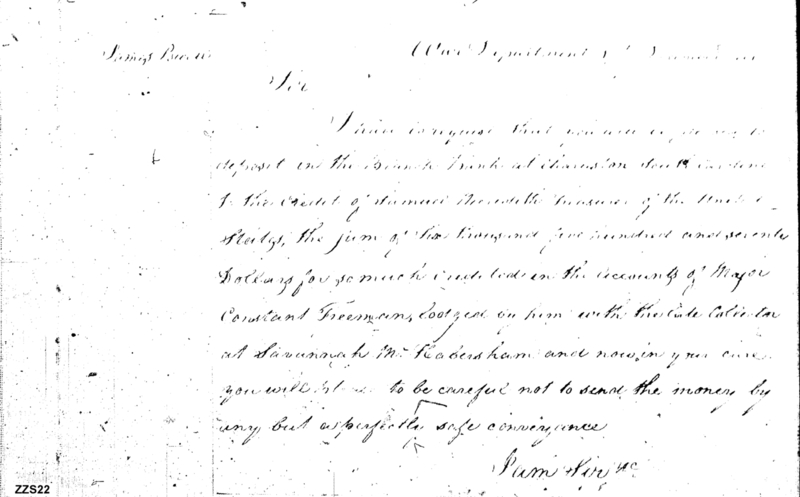 James Powell
War Department
Sir
I have to request that you will
deposit in the Branch Bank at Charleston South Carolina
to the credit of Samuel Meredith Treasurer of the United
States, the sum of Six thousand five hundred and seventy
Dollars for so much credited in the accounts of Major
Constant Freeman, lodged by him with the late Collector
at Savannah Mr Habersham and now in your care
you will to be careful not to send the money by
any but a perfectly safe conveyance
I am Sir &c
ZZS22